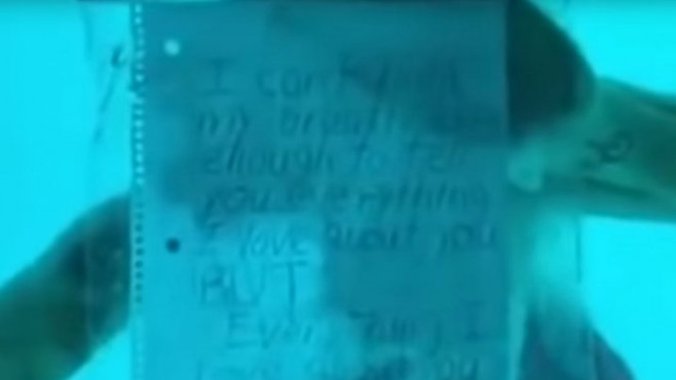 I can't hold
my breath long
enough to tell
you everything
I love about you
BUT
Everything I
love about you